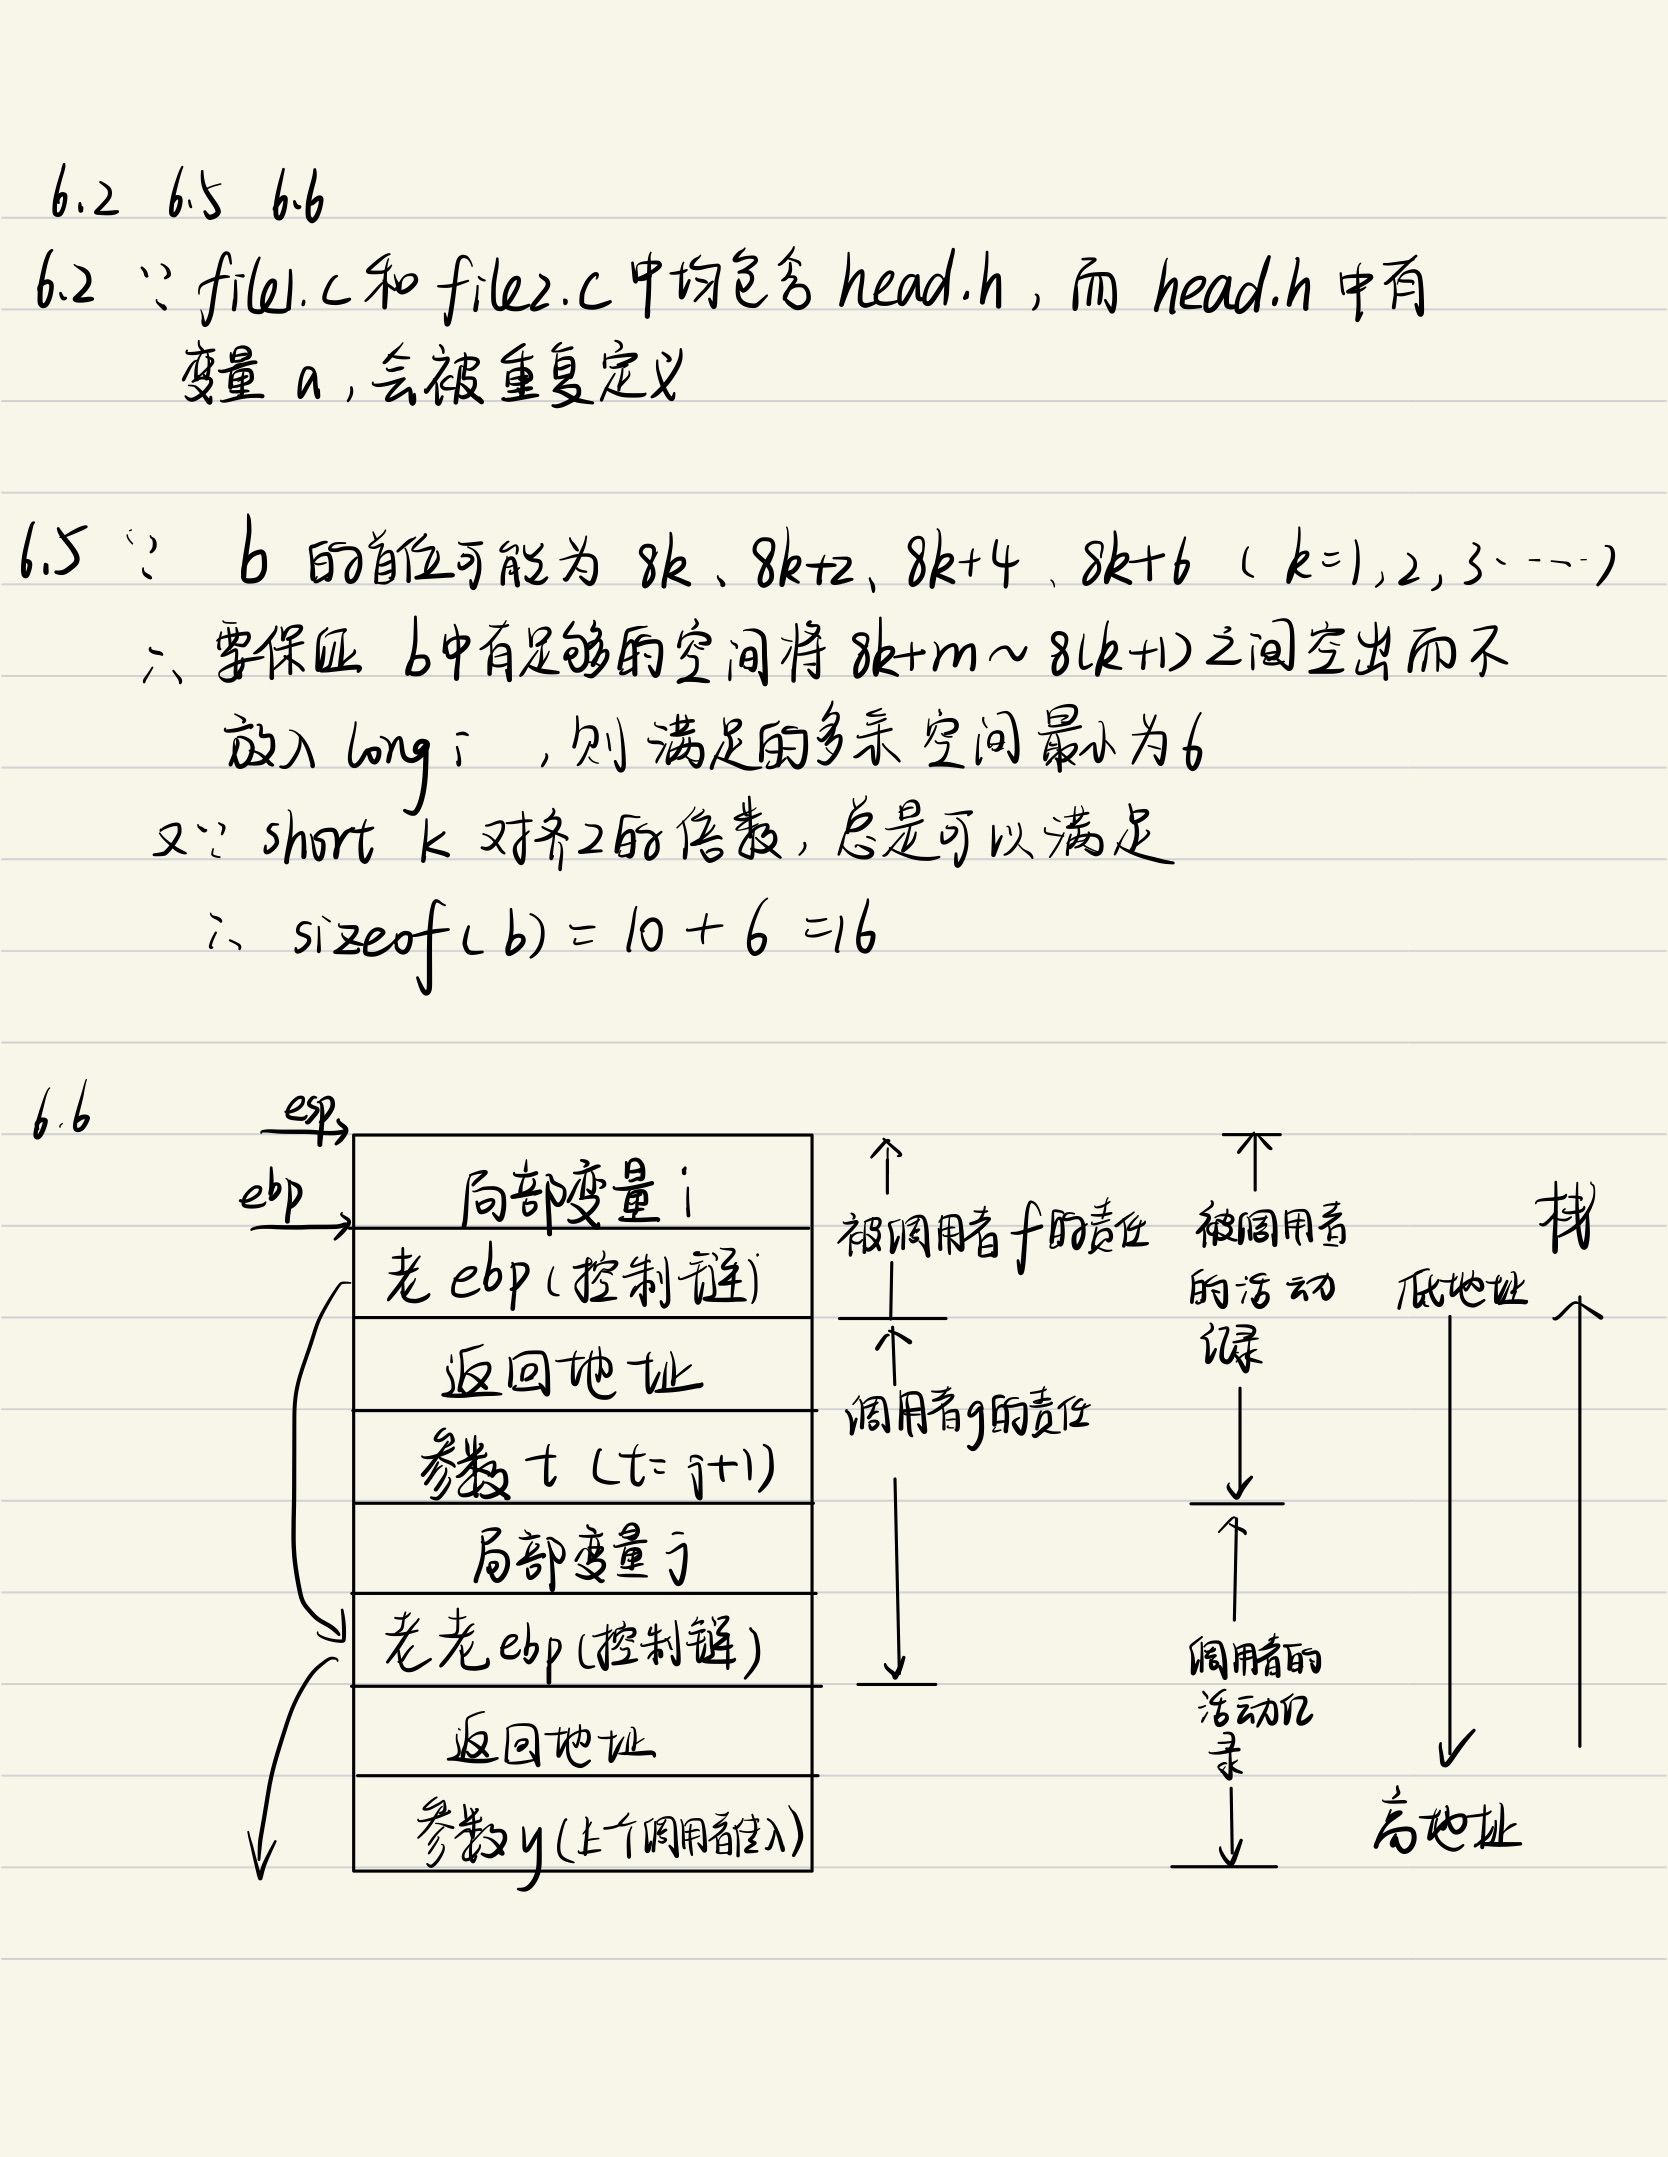 6.2 6.5 6.6
6.2 ∵ file1.c 和 file2.c 中均包含 head.h, 而 head.h 中有
变量 a, 会被重复定义
6.5 ∵ b 的首位可能为 8k、8k+2、8k+4、8k+6 (k=1,2,3……)
∴ 要保证 b中有足够的空间将 8k+m~8(k+1)之间空出而不
放入 long i , 则满足的多余空间最小为6
又∵ short k 对齐2的倍数, 总是可以满足
∴ sizeof(b) = 10 + 6 =16
6.6
esp
ebp
局部变量 i
老 ebp (控制链)
返回地址
参数 t (t=j+1)
局部变量 j
老老 ebp (控制链)
返回地址
参数 y (上个调用者传入)
被调用者 f 的责任
调用者g的责任
被调用者
的活动
记录
调用者的
活动记
录
低地址
高地址
栈